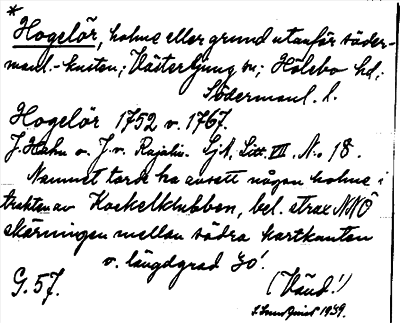 *
Hogelör, holme eller grund utanför söder-
manl.-kusten; Västerljung sn; Hölebo hd;
Södermanl. l.
Hogelör 1752 v. 1767.
J. Hahn o. J. v. Rajalin. SjK, Litt. VII, N:o 18.
Namnet torde ha avsett någon holme i
trakten av Kockelklubben, bel. strax NNÖ
skärningen mellan södra kartkanten
o. längdgrad 40'.
G. 57.
(Vänd!)
1939.